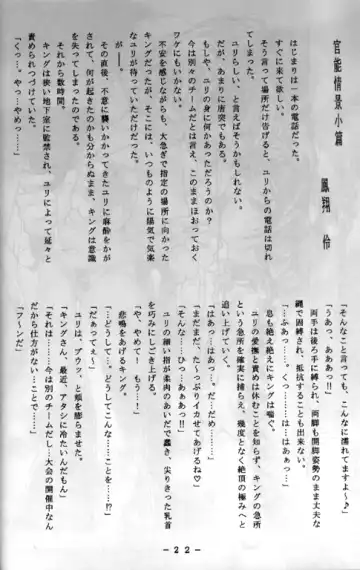 官能情景小篇
鳳翔 伶
はじまりは一本の電話だった。
すぐに来て欲しい。
そう言って場所だけ告げると、ユリからの電話は切れ
てしまった。
ユリらしい、と言えばそうかもしれない。
だが、あまりに唐突でもある。
もしや、ユリの身に何かあったんだろうか?
今は別々のチームだとは言え、このままほおっておく
ワケにもいかない。
不安を感じながらも、大急ぎで指定の場所に向かった
キングだったが、そこには、いつものように陽気で気楽
なユリが待っていただけだった。
が――。
その直後、不意に襲いかかってきたユリに麻酔をかが
されて、何が起きたのかも分からぬまま、キングは意識
を失ってしまったのである。
それから数時間。
キングは狭い地下室に監禁され、ユリによって延々と
責められつづけていた。
「くっ…。やっ…やめっ…」
「そんなこと言っても、こんなに濡れてますよ~♪」
「うあっ、ああぁっ!!」
両手は後ろ手に縛られ、両脚も開脚姿勢のまま丈夫な
縄で固縛され、抵抗することも出来ない。
「…ふあっ…。くっ………は…はぁっ…」
息も絶え絶えにキングは喘ぐ。
ユリの愛撫と責めは休むことを知らず、キングの急所
という急所を確実に捕らえ、幾度となく絶頂の極みへと
追い上げていく。
「はぁっ…はぁっ…。だ…だめ……」
「まだまだ、たっぷりイカせてあげるね♡」
「そんな…ひっ…あぁあっ!!」
ユリの細い指が柔肉のあいだで蠢き、尖りきった乳首
を巧みにしごき上げる。
「や、やめて! もう…!」
悲鳴をあげるキング。
「…どうして…。どうしてこんな…ことを……!?」
「だぁってぇ~」
ユリは、プウッ、と頬を膨らませた。
「キングさん、最近、アタシに冷たいんだもん」
「それは……今は別のチームだし…大会の開催中なん
だから仕方がない…ことで……」
「フ~ンだ」
-22-